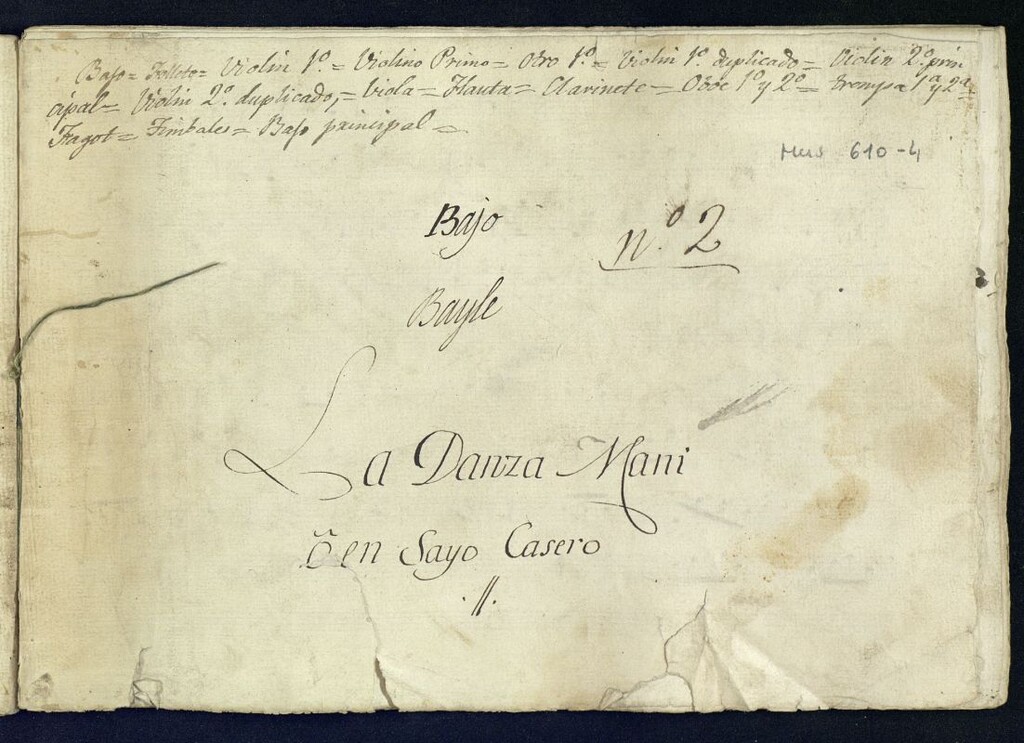 Bajo = Folleto = Violin 1º = Violino Primo = Otro 1º = Violin 1º duplicado = Violin 2º prin
cipal = Violin 2º duplicado, = Viola = Flauta = Clarinete = Oboe 1º y 2º = Trompa 1ª y 2ª =
Fagot = Timbales = Bajo principal =
Mus 610-4
Bajo
nº 2
Bayle
La Danza Mani
õ en Sayo Casero
.//.